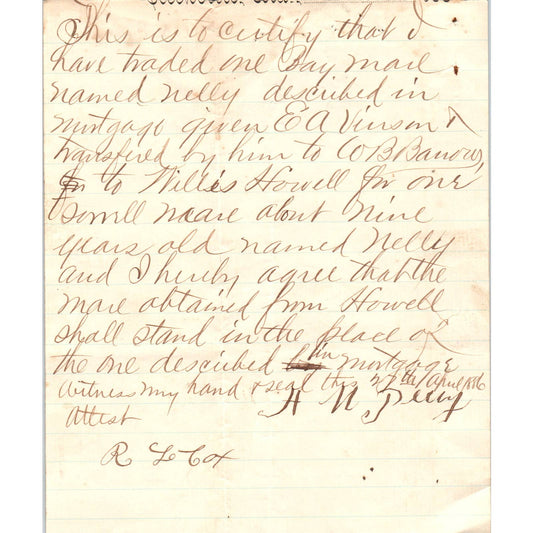 This is to certify that I
have traded one Bay mare
named Nelly described in
mortgage given E A Vinson &
transfered by him to W B Barrow,
to Willis Howell for one
Sorrell mare about nine
years old named Nelly
and I hereby agree that the
mare obtained from Howell
shall stand in the place of
the one described in mortgage
Witness my hand & seal this 27th April 1886
A N Perry
Attest
R L Cox